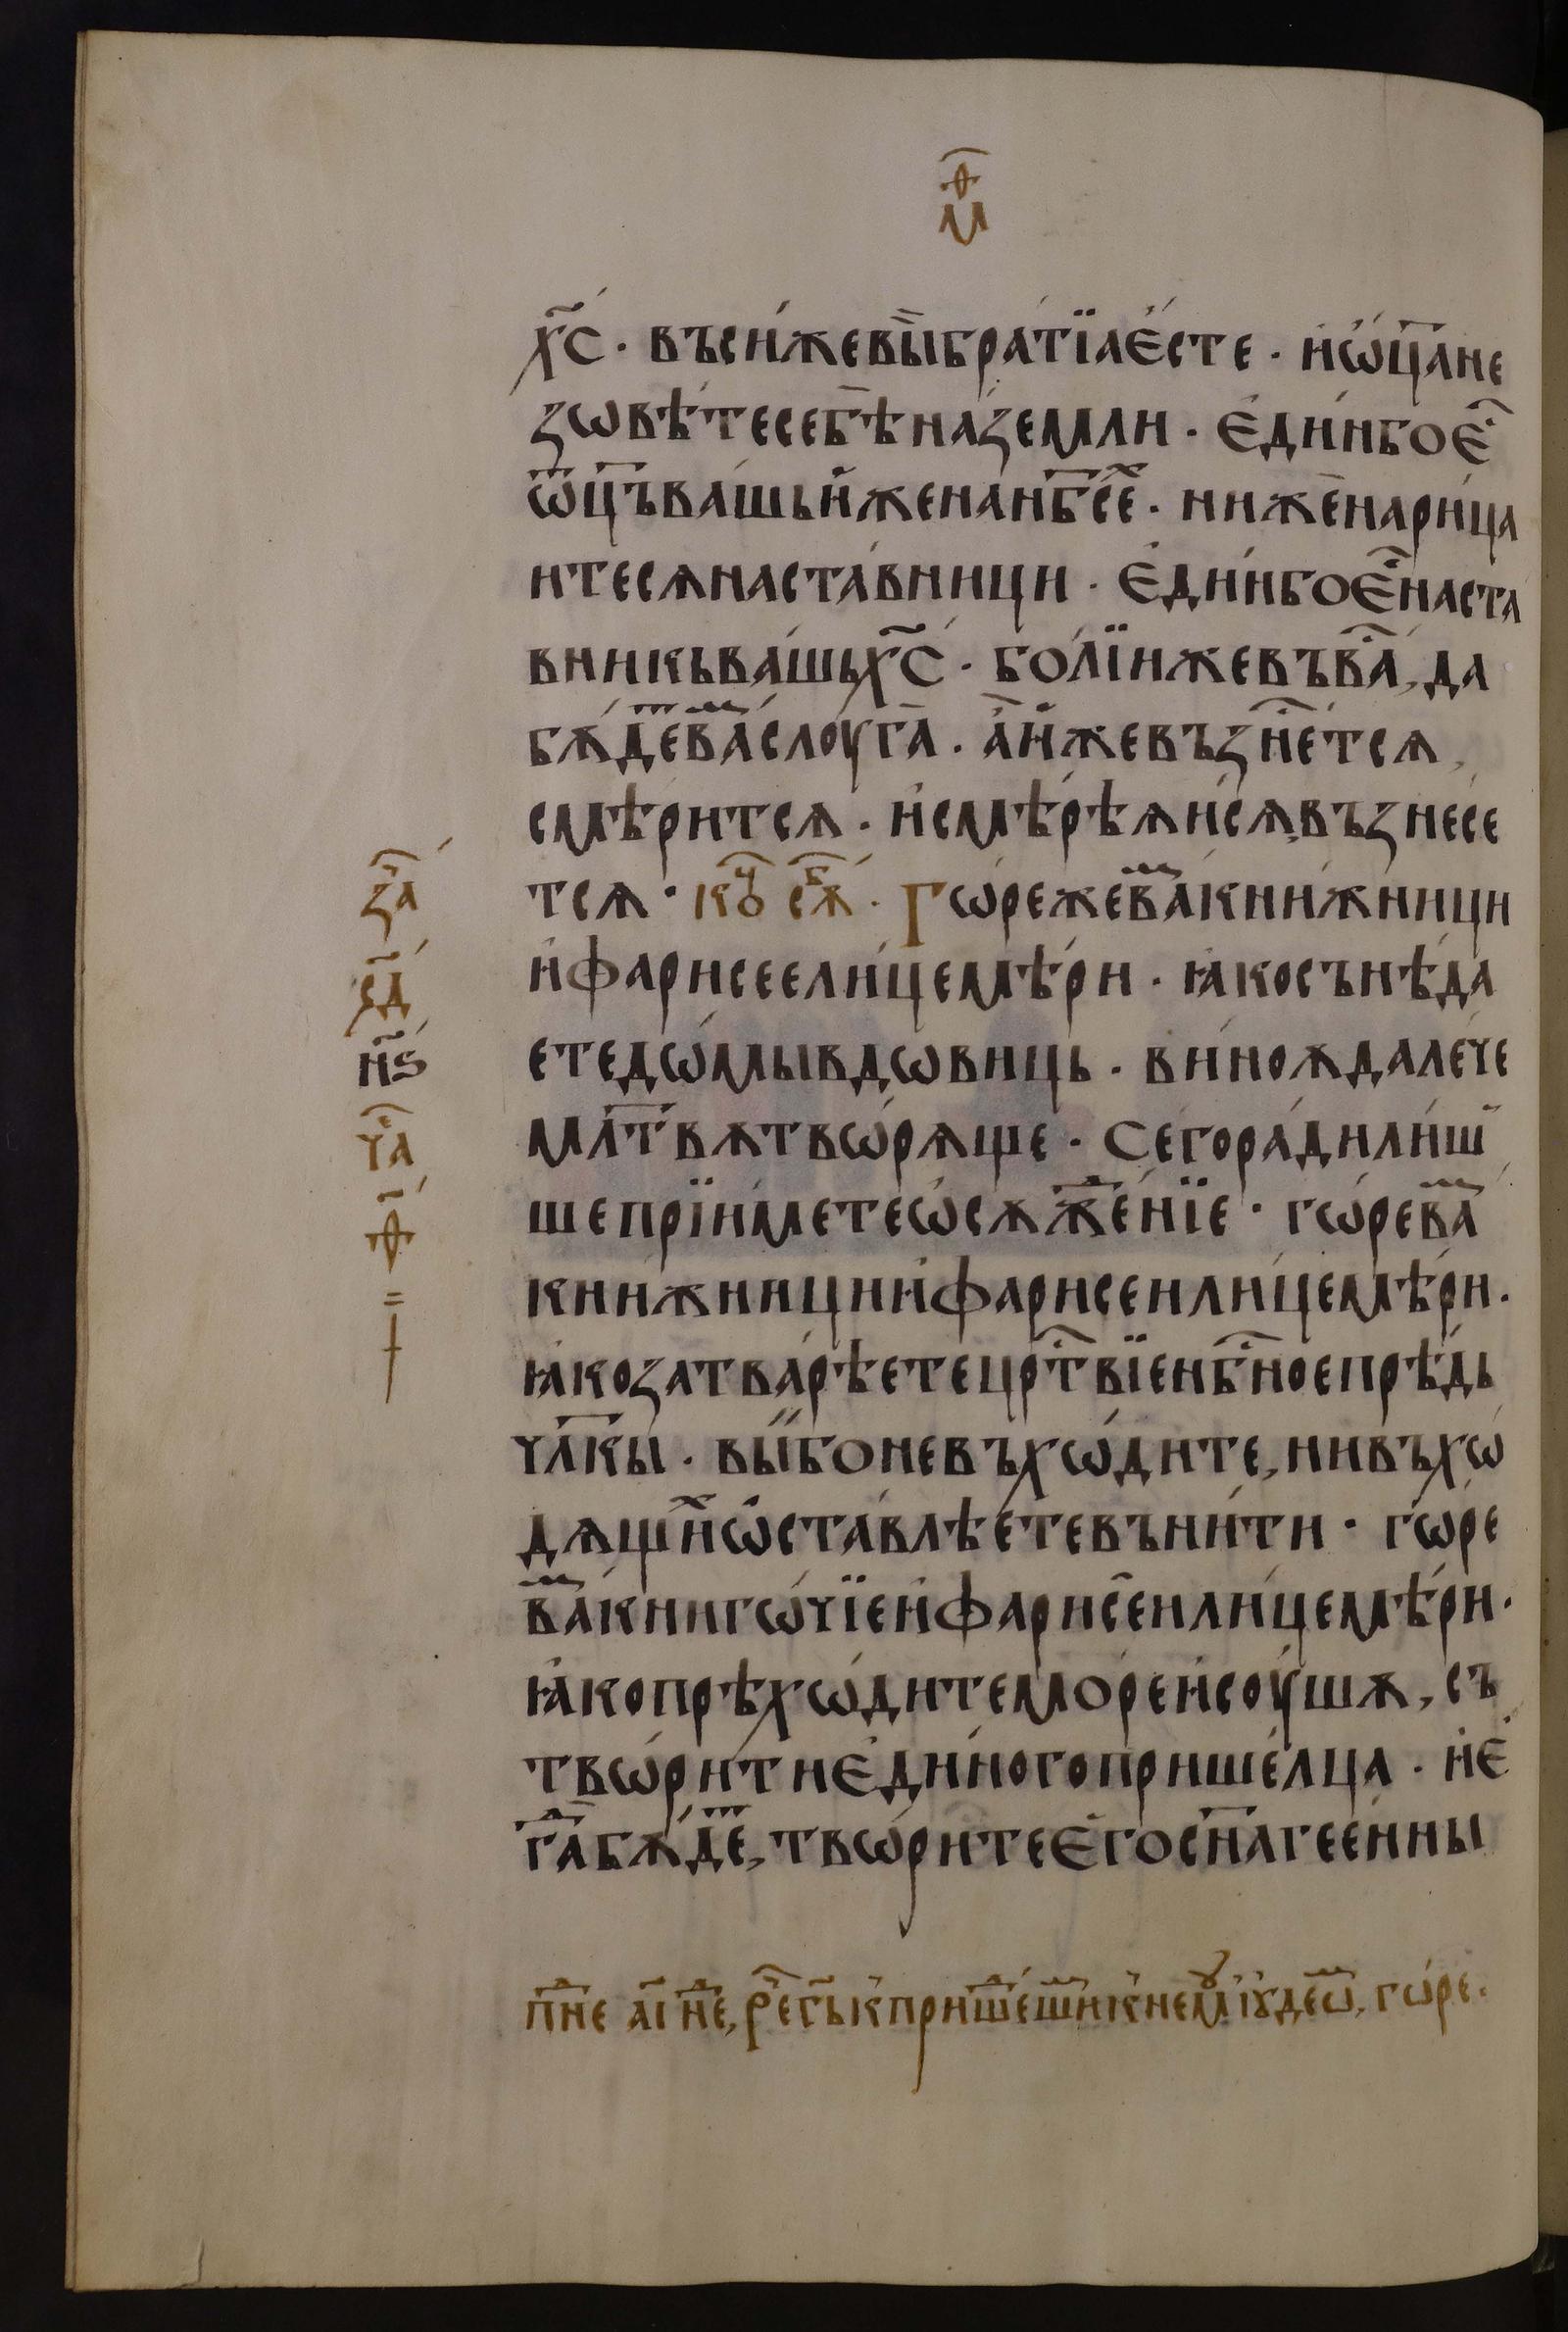 мѳ҃
х҃с · въси́жевы̀бра́тїаé́сте · и҆ѡ҆ц҃ане
зѡвѣ́тесебѣ̀назе́мли · є҆ди́нбоє҆̑
ѿц҃ъва́шьи҆́женанб҃се̑ · нижена̀ри́ца
итесѧнаста́вници · є҆ди́нбоє҆̑наста
вникьва́шьх҃с · бо́лїижевъва̑, да
бѫ́детⷨва̑слоуга̀ · а҆̀и҆́жевъзне́тсѧ,
смѣ́ритсѧ · и҆смѣ́рѣѧи҆сѧ, възнесе
тсѧ · коⷰ҇ сѫⷠ҇ · Гѡ́режева̑кни́жници
и҆фарисеели́цемѣ́ри · ꙗ҆косънѣ́да
етедѡ́мывдѡвиць · ви́ноѫдале́че
млт҃вѫтвѡ́рѧще · Сего́ра́дили́ш
шепрїи́метеѡ҆сѫжде́нїе · гѡ́рева̑
кни́жниции҆фарисеили́цемѣ́ри ·
ꙗ҆козатва́рѣетецрт҃вїенбⷭ҇ноепрѣ́дь
чл҃кы · вы́боневъхѡ́дите, нивъхѡ
дѧщи̑ѡ҆ста́влѣ́етевъни́ти · гѡ́ре
ва̑книгѡ́чїеи҆фарисе́или́цемѣ́ри ·
ꙗ҆копрѣхѡ́дитемо́реи҆соу́шѫ, съ
твѡ́ри́тиє҆ди́ногоприше́лца · и҆є҆
гда̑бѫ́дет, твѡ́ритеє҆госн҃агеéнны
за̑
ч҃д
н҃ѕ
ча̑
ѳ҃
пн҃е а҃і не̑, рⷱ҇ег҃ькприше́шик̾нем̾і҆ꙋдеѡ̑, гѡ́ре ·